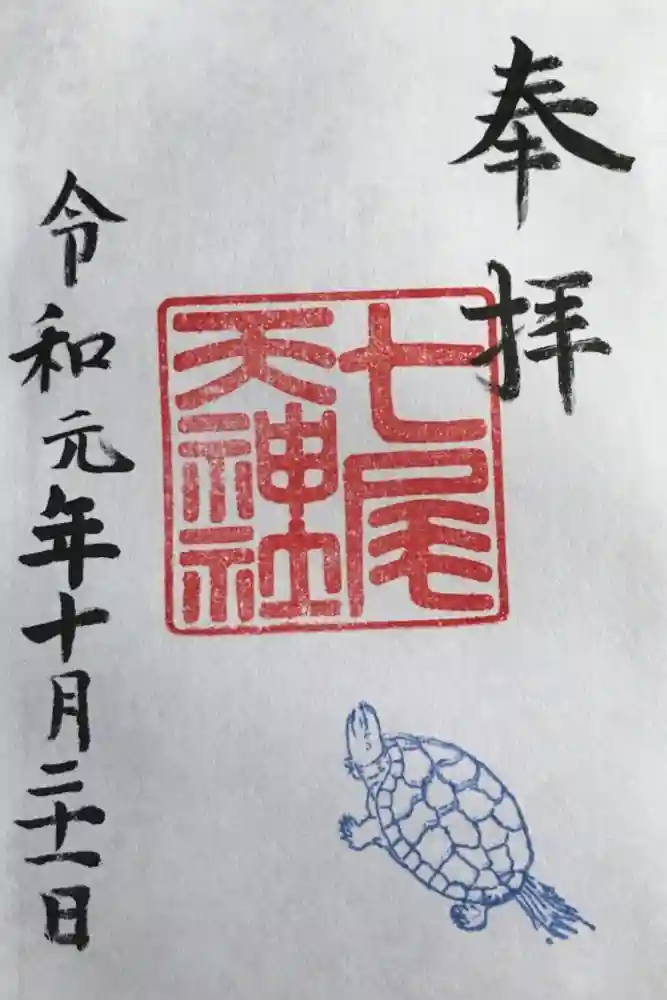 奉拝
七尾
天神社
令和元年十月二十一日